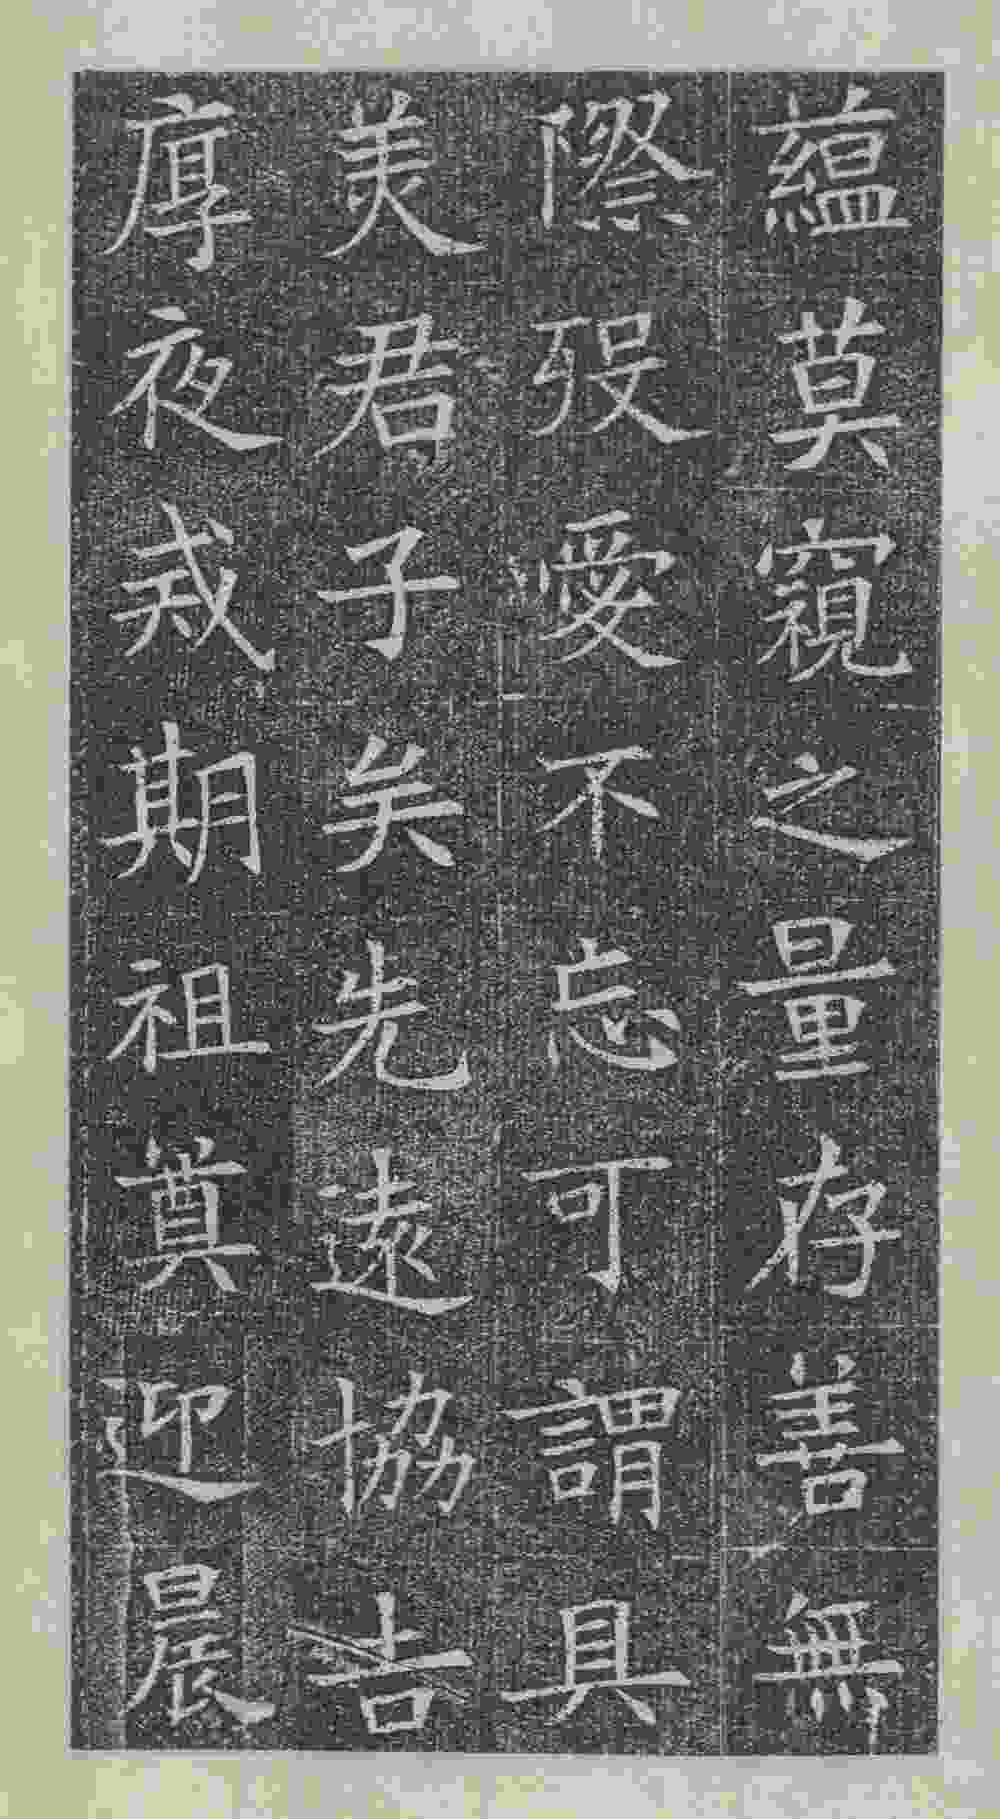 蘊莫窺之量存善無
際歿愛不忘可謂具
美君子矣先遠協吉
厚夜戒期祖奠迎晨